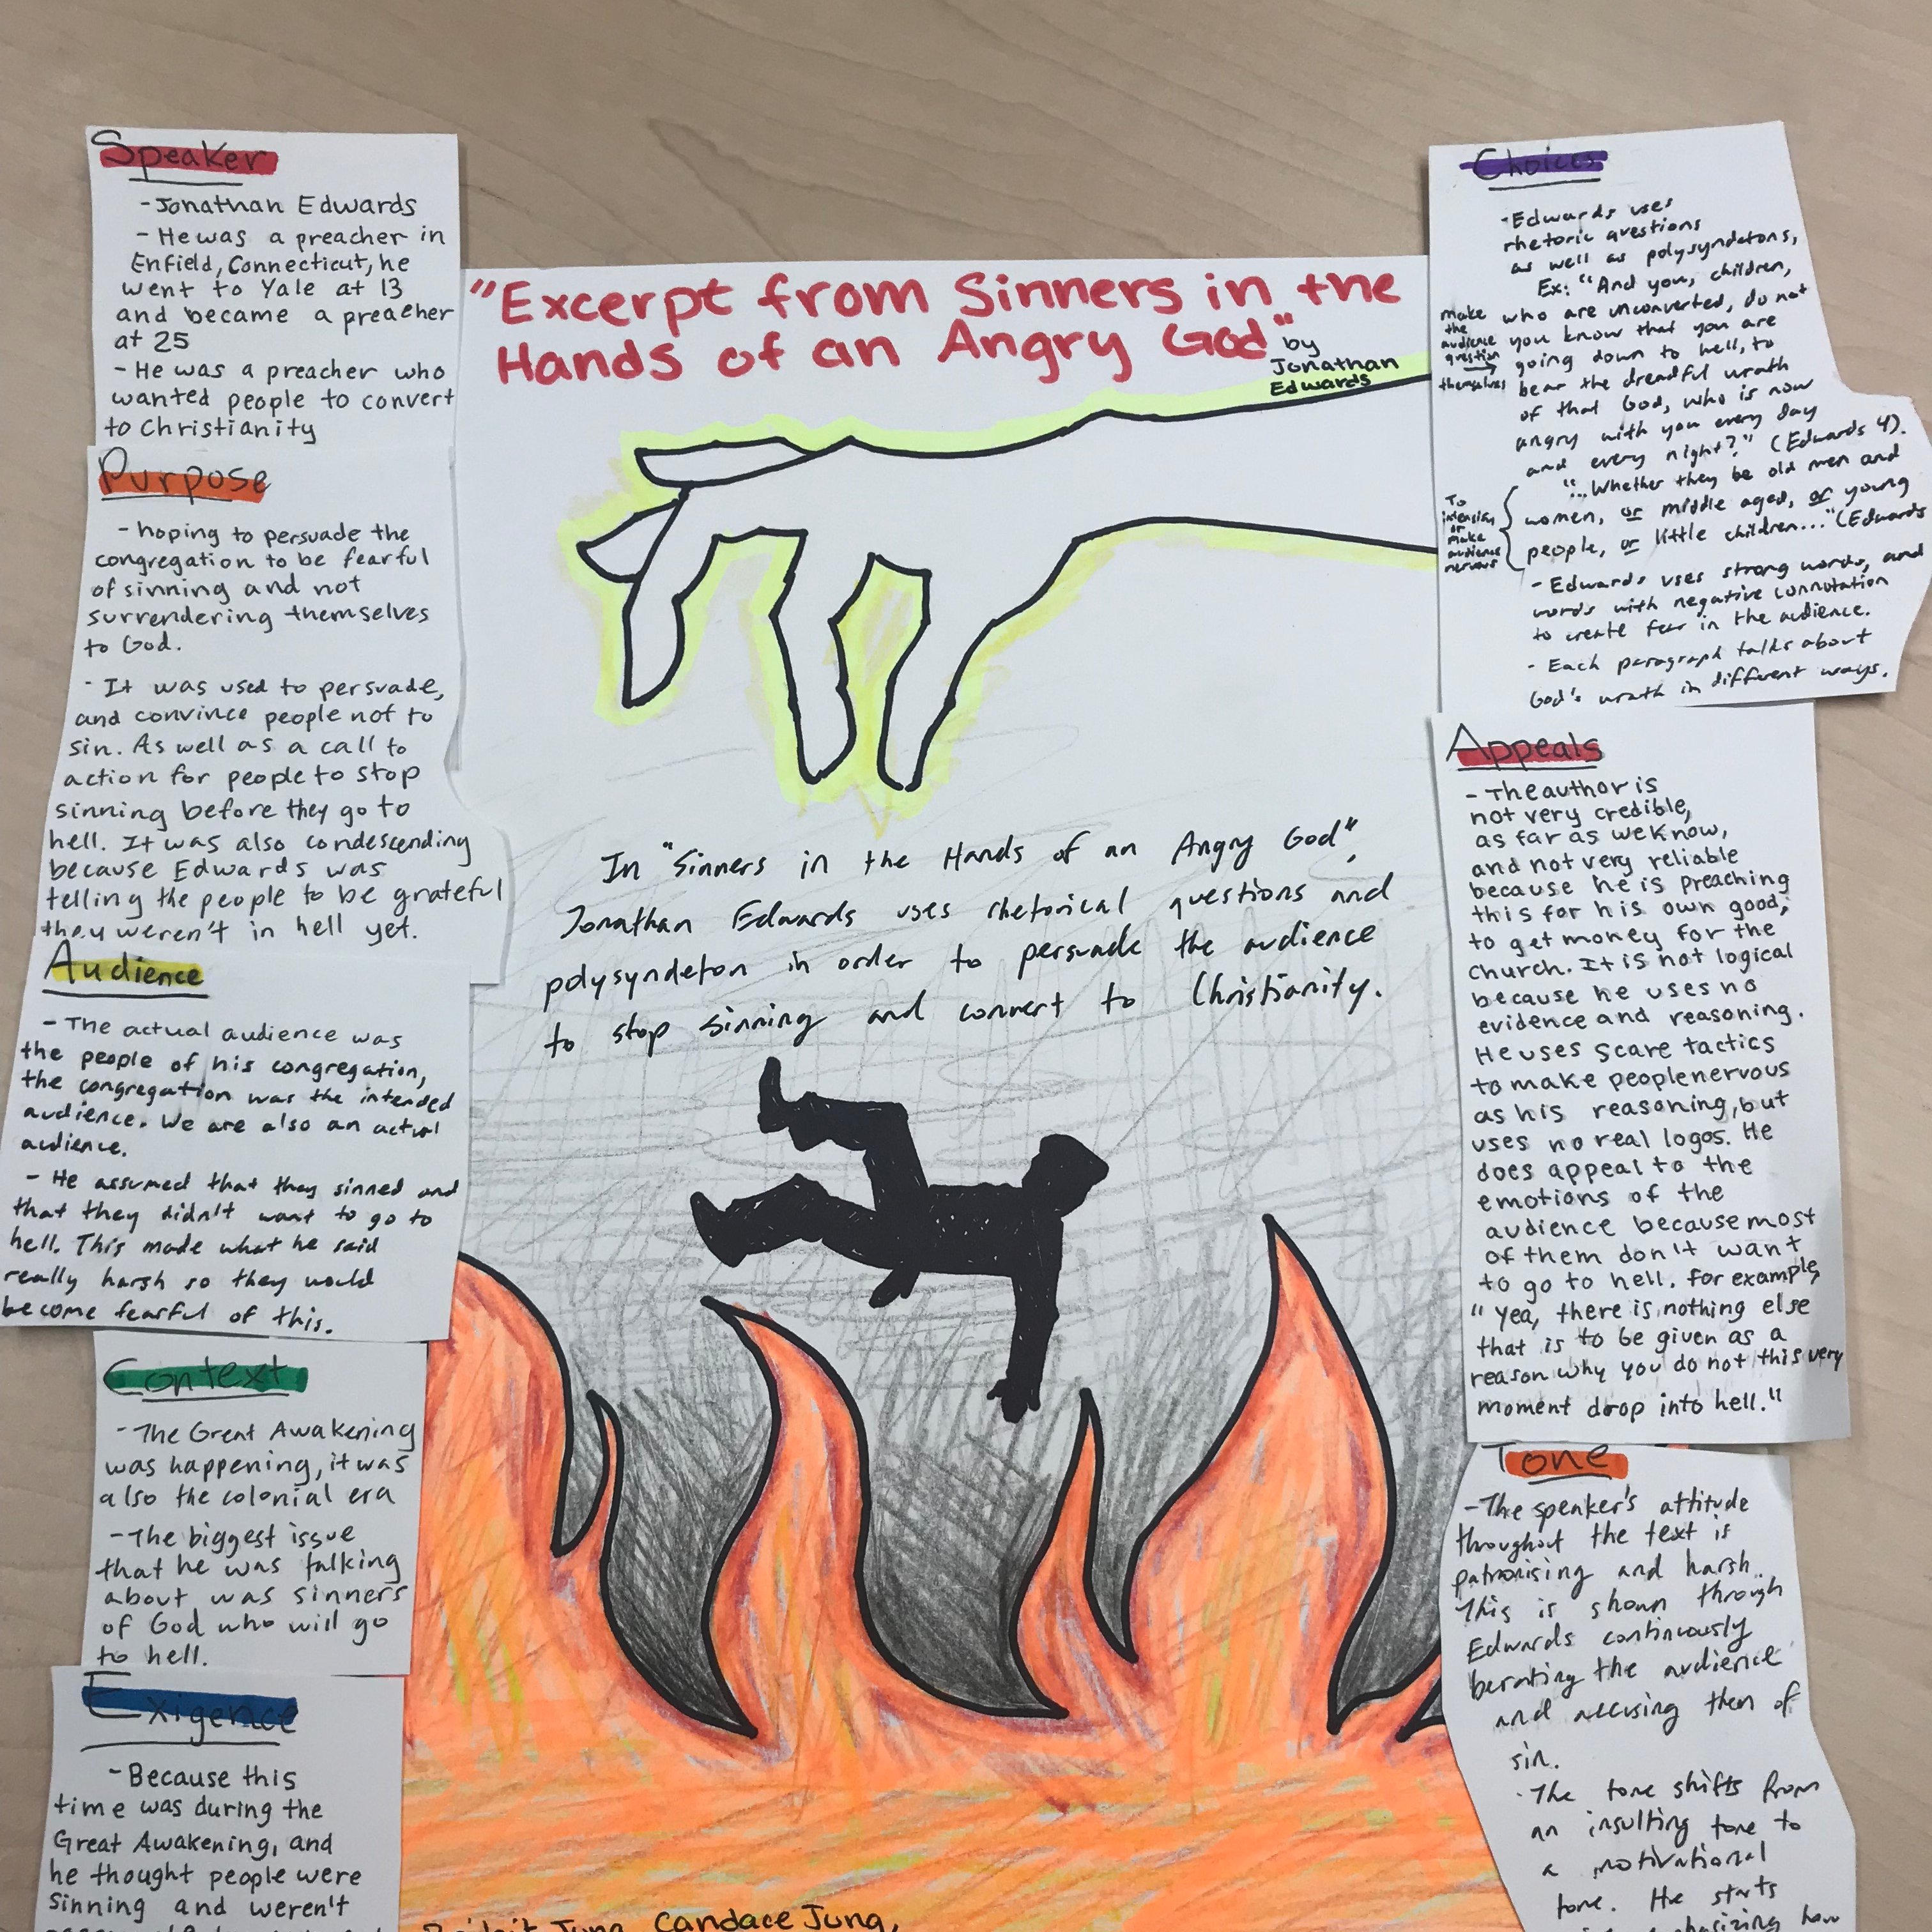 Speaker
-Jonathan Edwards
- He was a preacher in
Enfield, Connecticut, he
went to Yale at 13
and became a preacher
at 25
- He was a preacher who
wanted people to convert
to Christianity
Purpose
- hoping to persuade the
congregation to be fearful
of sinning and not
surrendering themselves
to God.
- It was used to persuade,
and convince people not to
sin. As well as a call to
action for people to stop
sinning before they go to
hell. It was also condescending
because Edwards was
telling the people to be grateful
they weren't in hell yet.
Audience
- The actual audience was
the people of his congregation,
the congregation was the intended
audience. We are also an actual
audience.
- He assumed that they sinned and
that they didn't want to go to
hell. This made what he said
really harsh so they would
become fearful of this.
Context
- The Great Awakening
was happening, it was
also the colonial era
- The biggest issue
that he was talking
about was sinners
of God who will go
to hell.
Exigence
- Because this
time was during the
Great Awakening, and
he thought people were
sinning and weren't
"Excerpt from Sinners in the
Hands of an Angry God"
by
Jonathan
Edwards
In "Sinners in the Hands of an Angry God",
Jonathan Edwards uses rhetorical questions and
polysyndeton in order to persuade the audience
to stop sinning and convert to Christianity.
Jung, Candace Jung,
Choices
-Edwards uses
rhetoric questions
as well as polysyndetons,
Ex: "And you, children,
who are unconverted, do not
you know that you are
going down to hell, to
bear the dreadful wrath
of that God, who is now
angry with you every day
and every night?" (Edwards 4).
make
the
audience
question
themselves
"...Whether they be old men and
women, or middle aged, or young
people, or little children..." (Edwards
To
intensify
or
make
audience
nervous
- Edwards uses strong words, and
words with negative connotation
to create fear in the audience.
- Each paragraph talks about
God's wrath in different ways.
Appeals
- The author is
not very credible,
as far as we know,
and not very reliable
because he is preaching
this for his own good,
to get money for the
church. It is not logical
because he uses no
evidence and reasoning.
He uses scare tactics
to make people nervous
as his reasoning, but
uses no real logos. He
does appeal to the
emotions of the
audience because most
of them don't want
to go to hell. for example,
"Yea, there is nothing else
that is to be given as a
reason why you do not this very
moment drop into hell."
Tone
-The speaker's attitude
throughout the text is
patronising and harsh.
This is shown through
Edwards continuously
berating the audience
and accusing them of
sin.
- The tone shifts from
an insulting tone to
a motivational
tone. He starts
how